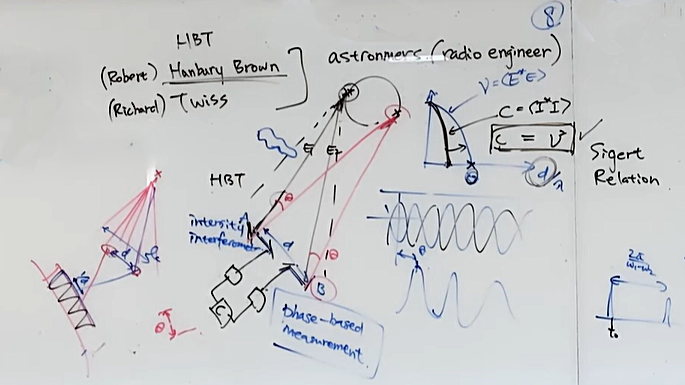 8
HBT
(Robert) Hanbury Brown
(Richard) Twiss
astronmers (radio engineer)
V=⟨E*E⟩
C=⟨I*I⟩
C = V²
d/λ
Sigert
Relation
E₁
E₂
HBT
θ
A
intensity
interferometer
d
θ
B
C
phase-based
measurement
θ
d
θ
2π
ω₁-ω₂
t₀